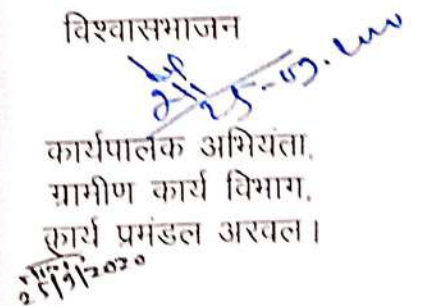 विश्वासभाजन
कार्यपालक अभियंता,
ग्रामीण कार्य विभाग,
कार्य प्रमंडल अरवल।
25/9/2020